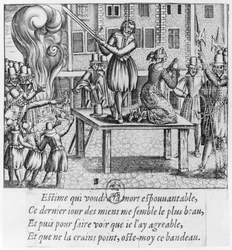 3
Estime qui mort espouvantable,
Ce dernier iour des miens me semble le plus beau,
Et puis pour faire voir que ie l'ay agreable,
Et que ne la crains point, oste-moy ce bandeau.